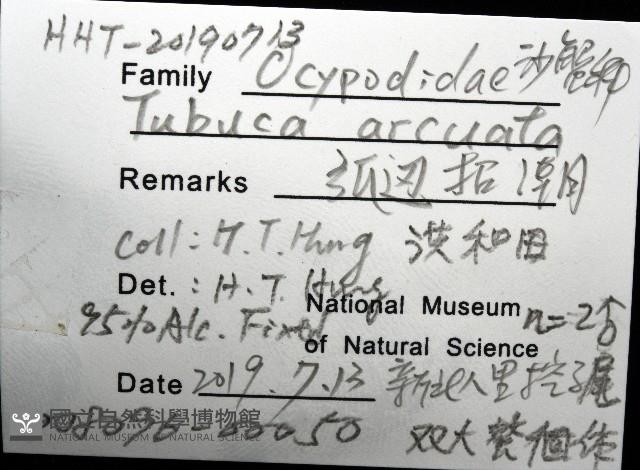 HHT-20190713
Family Ocypodidae 沙蟹科
Tubuca arcuata
Remarks 弧边招潮
coll: H.T. Hung 洪和田
Det.: H.T. Hung
National Museum n=2♂
95% Alc. Fixed
of Natural Science
Date 2019.7.13 新北八里挖子尾
國立自然科學博物館
NATIONAL MUSEUM OF NATURAL SCIENCE
50 双大螯個体